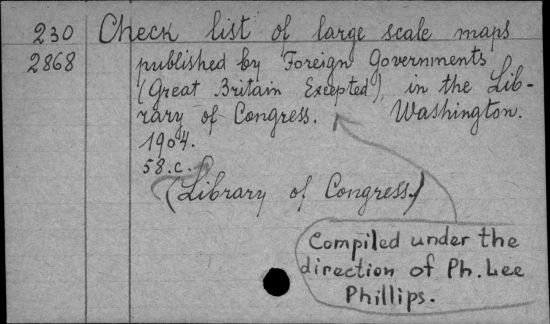 230 Check list of large scale maps
2868 published by Foreign Governments
(Great Britain Excepted), in the Lib-
rary of Congress. Washington.
1904.
58.c.
(Library of Congress.)
Compiled under the
direction of Ph. Lee
Phillips.